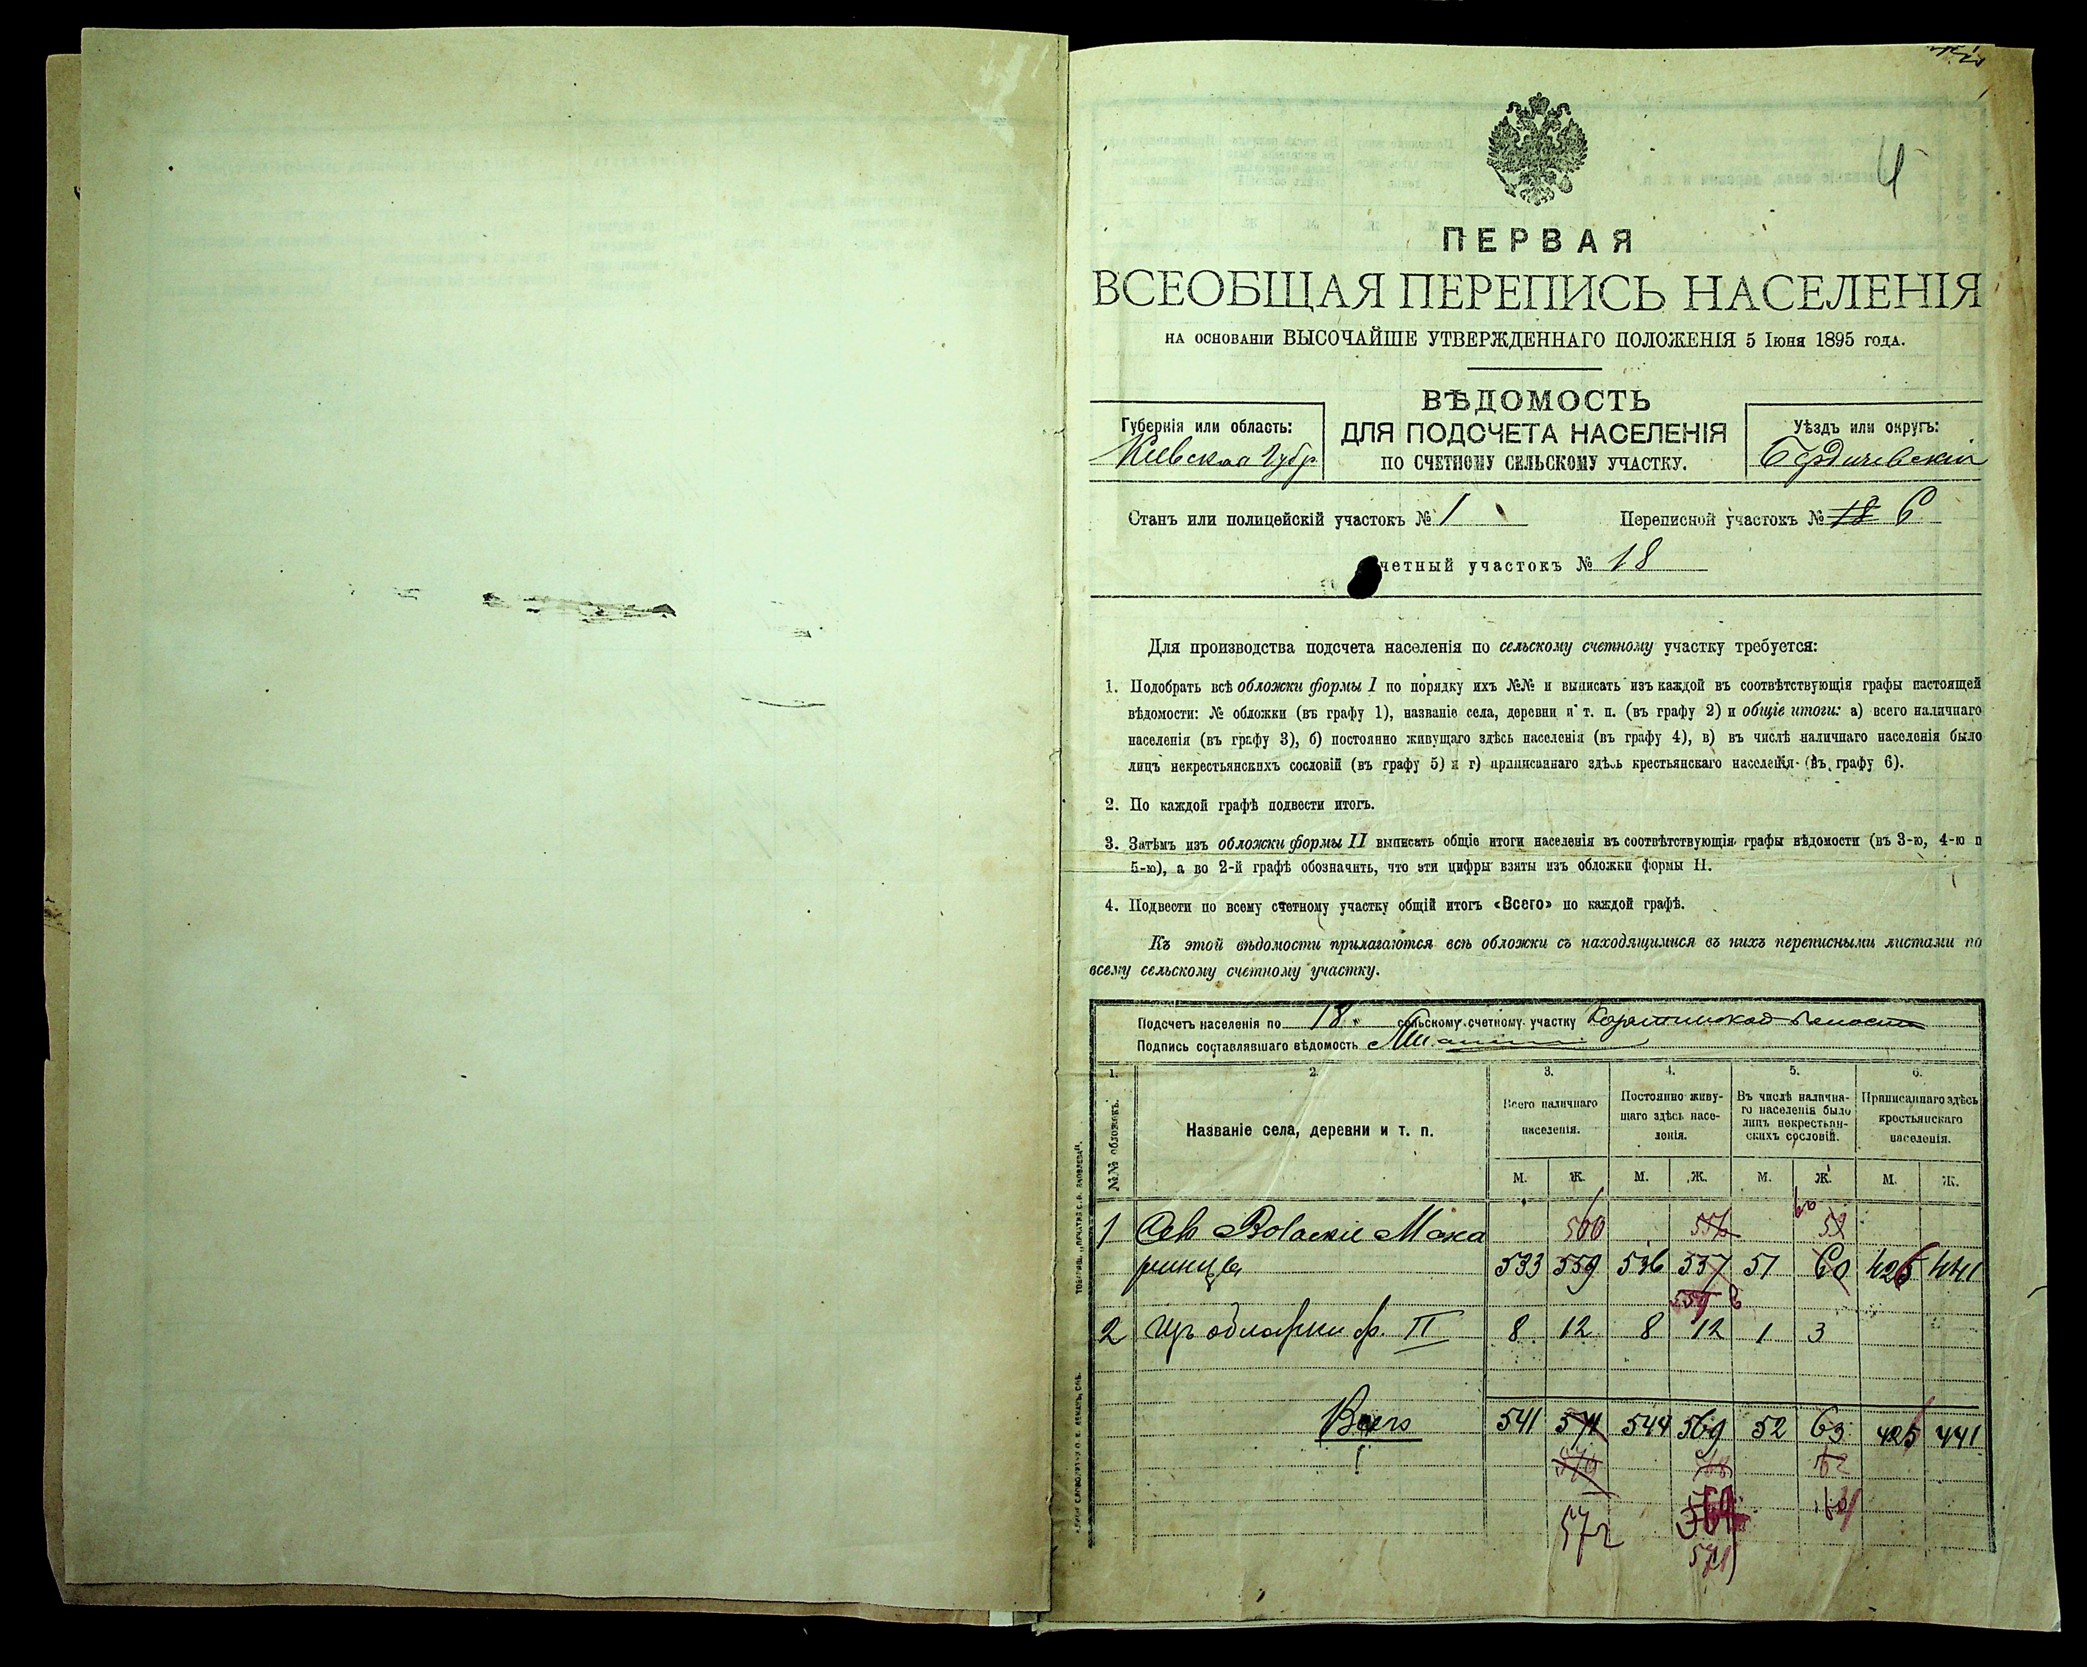 4
ПЕРВАЯ
ВСЕОБЩАЯ ПЕРЕПИСЬ НАСЕЛЕНІЯ
НА ОСНОВАНІИ ВЫСОЧАЙШЕ УТВЕРЖДЕННАГО ПОЛОЖЕНІЯ 5 Іюня 1895 ГОДА.
ВѢДОМОСТЬ
ДЛЯ ПОДСЧЕТА НАСЕЛЕНІЯ
ПО СЧЕТНОМУ СЕЛЬСКОМУ УЧАСТКУ.
Губернія или область:
Кіевская Губр
Уѣздъ или округъ:
Бердичевскій
Станъ или полицейскій участокъ № 1 Переписной участокъ № 18 6
четный участокъ № 18
Для производства подсчета населенія по сельскому счетному участку требуется:
1. Подобрать всѣ обложки формы I по порядку ихъ №№ и выписать изъ каждой въ соотвѣтствующія графы настоящей
вѣдомости: № обложки (въ графу 1), названіе села, деревни и т. п. (въ графу 2) и общіе итоги: а) всего наличнаго
населенія (въ графу 3), б) постоянно живущаго здѣсь населенія (въ графу 4), в) въ числѣ наличнаго населенія было
лицъ некрестьянскихъ сословій (въ графу 5) и г) приписаннаго здѣсь крестьянскаго населенія (въ графу 6).
2. По каждой графѣ подвести итогъ.
3. Затѣмъ изъ обложки формы II выписать общіе итоги населенія въ соотвѣтствующія графы вѣдомости (въ 3-ю, 4-ю и
5-ю), а во 2-й графѣ обозначить, что эти цифры взяты изъ обложки формы II.
4. Подвести по всему счетному участку общій итогъ «Всего» по каждой графѣ.
Къ этой вѣдомости прилагаются всѣ обложки съ находящимися въ нихъ переписными листами по
всему сельскому счетному участку.
Подсчетъ населенія по 18 сельскому счетному участку
Подпись составлявшаго вѣдомость
1. 2. 3. 4. 5. 6.
№№ обложекъ.
Названіе села, деревни и т. п.
Всего наличнаго населенія.
Постоянно живущаго здѣсь населенія.
Въ числѣ наличнаго населенія было лицъ некрестьянскихъ сословій.
Приписаннаго здѣсь крестьянскаго населенія.
М. Ж. М. Ж. М. Ж. М. Ж.
560 556 60 59
1 Мака
ринцы 533 559 536 557 51 60 425 441
559
2 Изъ обложки ф. II 8 12 8 12 1 3
Всего 541 571 544 569 52 63 425 441
62
572
571